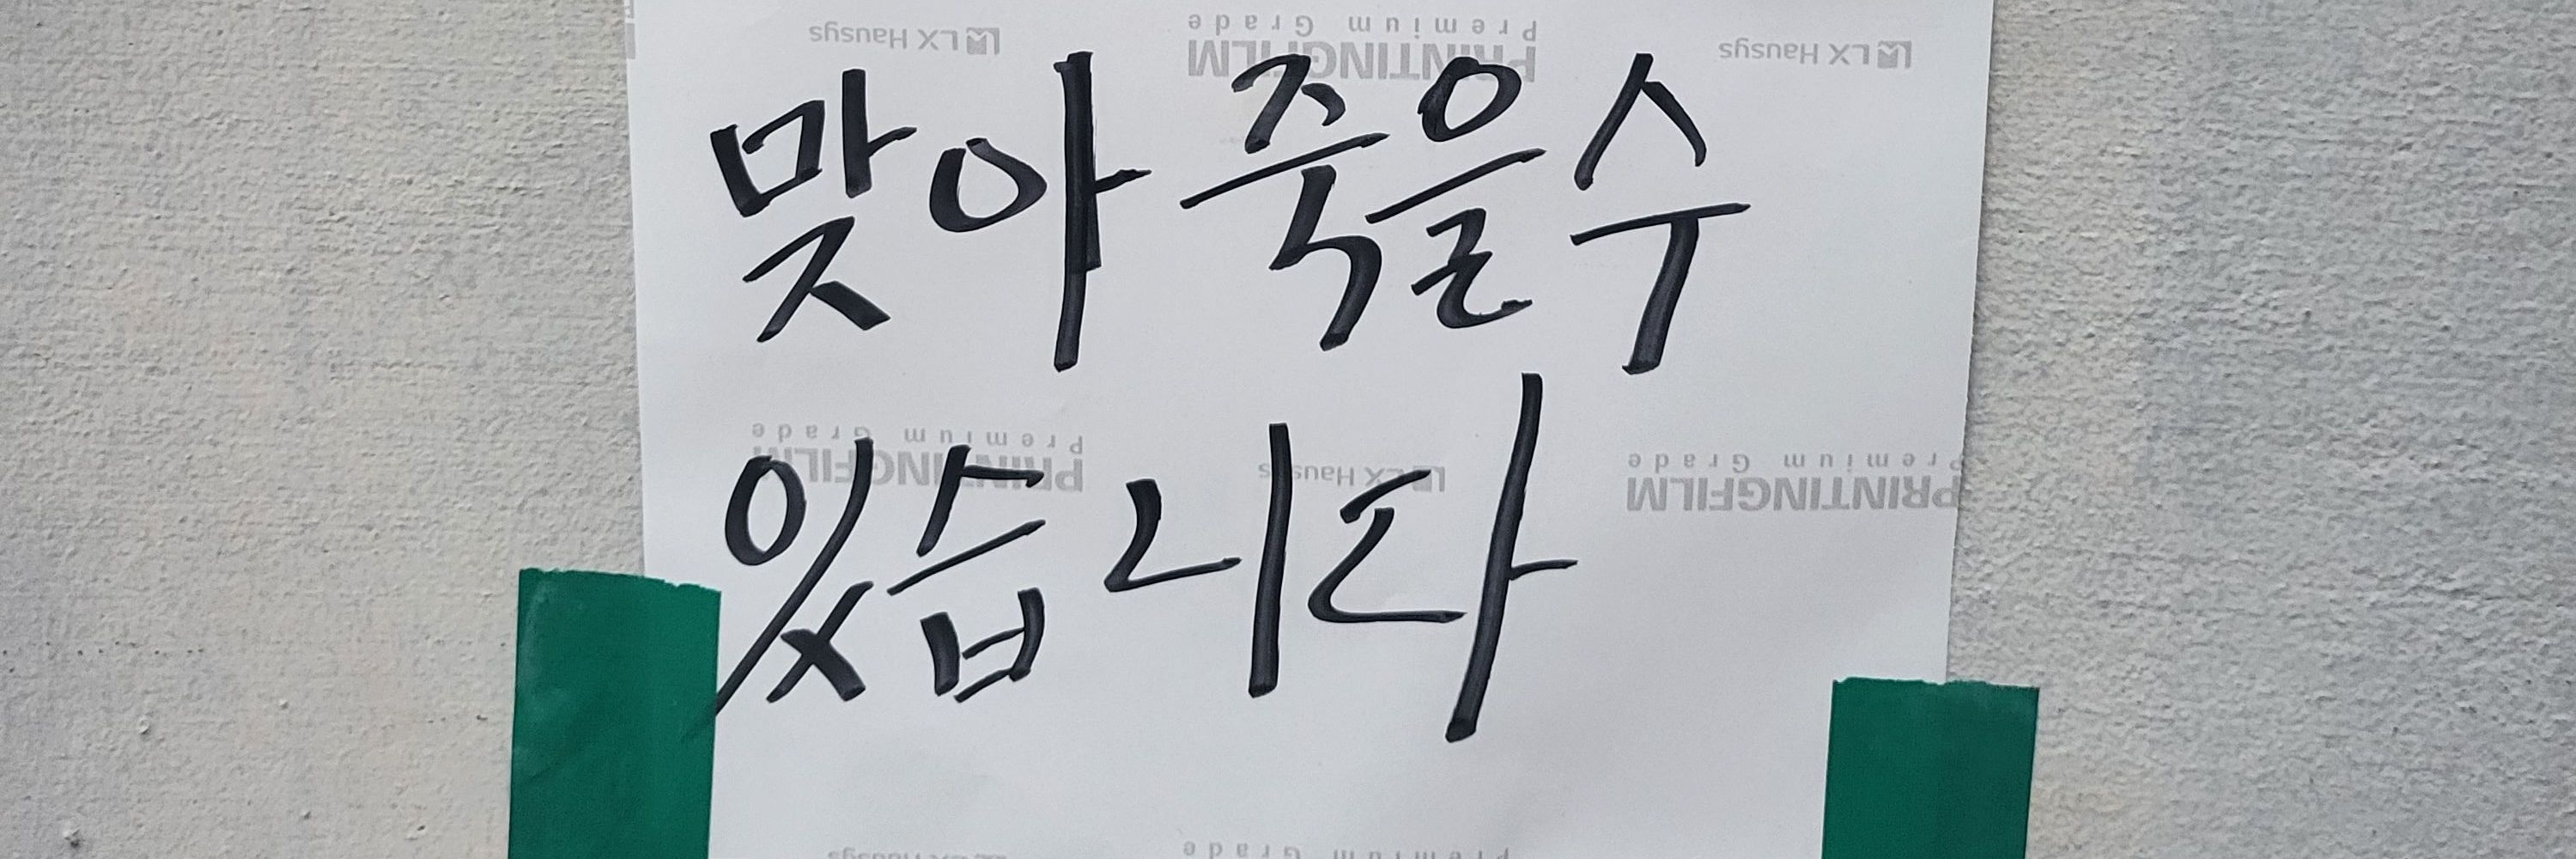 LX Hausys
Premium Grade
PRINTINGFILM
LX Hausys
맞아 죽을수
Premium Grade
PRINTINGFILM
LX Hausys
Premium Grade
PRINTINGFILM
있습니다
Premium Grade